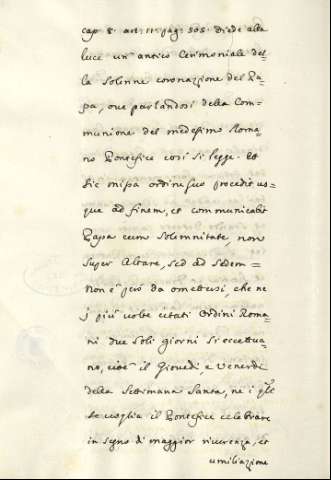 cap. 8. art. 11. pag. 505. diede alla
luce un' antico Cerimoniale del=
la Solenne coronazione del Pa=
pa, ove parlandosi della Com=
munione del medesimo Roma=
no Pontefice così si legge. Et
sic missa ordine suo procedit us=
que ad finem, et communicabit
Papa cum Solemnitate, non
Super Altare, sed ad Sedem =
Non è però da omettersi, che ne
i più volte citati Ordini Roma=
ni due soli giorni si eccettua=
no, cioè il Giovedì, e Venerdì
della Settimana Santa, ne i qli
voglia il Pontefice celebrare
in segno di maggior riverenza, et
umiliazione